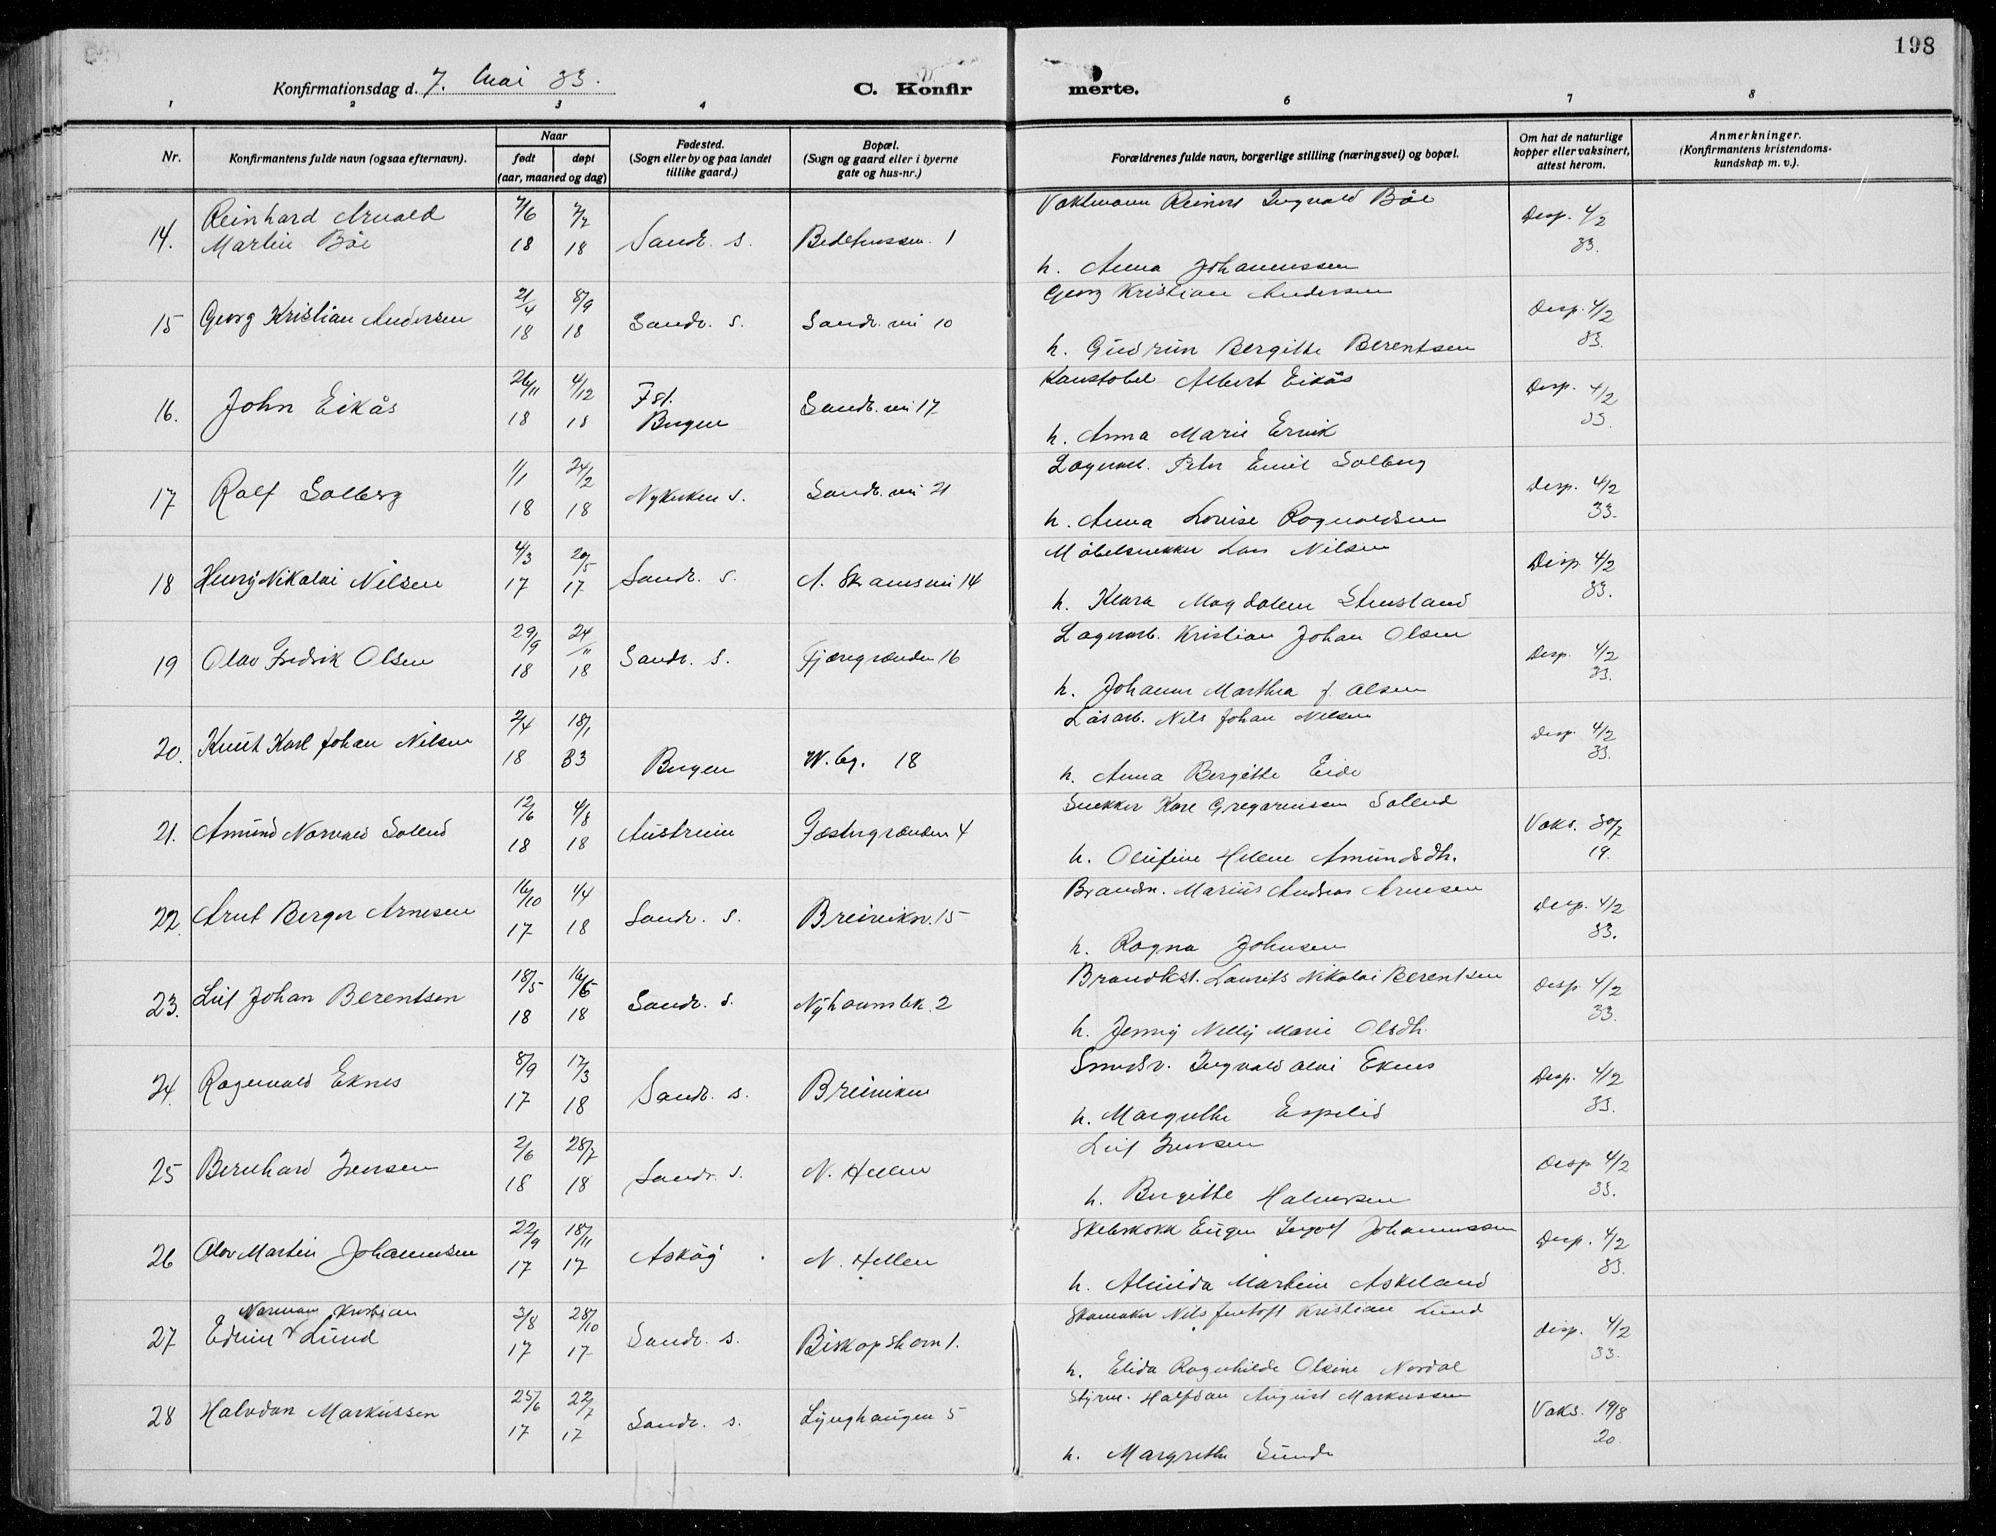 198
Konfirmationsdag d. 7. Mai 33.
C. Konfirmerte.
1 2 3 4 6 7 8
Nr.
Konfirmantens fulde navn (ogsaa efternavn).
Naar
født døpt
(aar, maaned og dag)
Fødested.
(Sogn eller by og paa landet
tillike gaard.)
Bopæl.
(Sogn og gaard eller i byerne
gate og hus-nr.)
Forældrenes fulde navn, borgerlige stilling (næringsvei) og bopæl.
Om hat de naturlige
kopper eller vaksinert,
attest herom.
Anmerkninger.
(Konfirmantens kristendoms-
kundskap m. v.).
Reinhard Arvald 7/6 7/7 Vaktmann Reinert Ingvald Bøe Disp. 4/2
14. Martin Bøe 18 18 Sandv. s. Bedehussm. 1 33.
h. Anna Johannessen
21/4 8/9 Georg Kristian Andersen
15 Georg Kristian Andersen 18 18 Sandv. s. Sandv. vei 10 Disp. 4/2
h. Gudrun Bergitte Berentsen 33.
26/11 4/12 Fst. Konstabel Albert Eikås Disp. 4/2
16. John Eikås 18 18 Bergen Sandv. vei 17 33.
h. Anna Marie Ervik
1/1 24/2 Lagerarb. Peter Emil Solberg
17 Ralf Solberg 18 18 Nykirken s. Sandv. vei 21 Disp. 4/2
h. Anna Lovise Ragnvaldsen 33.
4/3 20/5 Møbelsnekker Lars Nilsen
18 Henry Nikolai Nilsen 17 17 Sandv. s. N. Skansevei 14 Disp. 4/2
h. Klara Magdalene Stensland 33.
29/9 24/11 Lagerarb. Kristian Johan Olsen
19 Olav Fredrik Olsen 18 18 Sandv. s. Fjæregrænden 16 Disp. 4/2
h. Johanne Marthea f. Olsen 33.
2/4 18/1 Løsarb. Nils Johan Nilsen
20. Knut Karl Johan Nilsen 18 33 Bergen W. bg. 18 Disp. 4/2
h. Anna Bergitte Eide 33.
12/6 4/8 Snekker Kare Gregoriussen Solend
21. Amund Norvald Solend 18 18 Austrheim Fæstergrænden 4 Vaks. 30/7
h. Olufine Helene Amundsdh. 19.
16/10 1/4 Brandm. Marius Andreas Arnesen
22. Arnt Berger Arnesen 17 18 Sandv. s. Breivikv. 15 Disp. 4/2
h. Ragna Johnsen 33.
18/5 16/6 Brandkst. Laurits Nikolai Berentsen
23. Leif Johan Berentsen 18 18 Sandv. s. Nyhavnsbk. 2 Disp. 4/2
h. Jenny Nelly Marie Olsdh. 33.
8/9 17/3 Smedsv. Ingvald Olai Eknes
24. Ragnvald Eknes 17 18 Sandv. s. Breiviken Disp. 4/2
h. Margrethe Espelid 33.
2/6 28/7 Leif Iversen
25 Bernhard Iversen 18 18 Sandv. s. N. Hellen Disp. 4/2
h. Bergitte Halvorsen 33.
22/9 18/11 Skibskokk Eugen Ingolf Johannessen
26 Olav Martin Johannesen 17 17 Askøy N. Hellen Disp. 4/2
h. Almida Martine Askeland 33.
Norman Kristian 3/8 28/10 Skomaker Nils Kristian Lund
27 Edvin v Lund 17 17 Sandv. s. Biskopshavn 1. Disp. 4/2
h. Elida Ragnhilde Olsine Nordal 33.
25/6 22/7 Styrm. Halfdan August Markussen
28 Halvdan Markussen 17 17 Sandv. s. Lynghaugen 5 Vaks. 19/8
h. Margrethe Sunde 20.